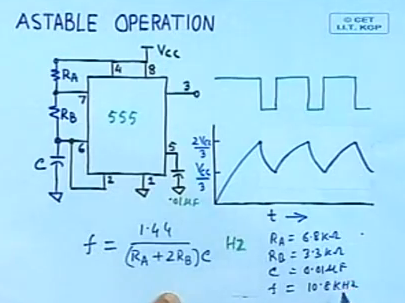 ASTABLE OPERATION
© CET
I.I.T. KGP
Vcc
RA
4
8
3
7
RB
555
6
5
C
2
1
.01µF
2Vcc/3
Vcc/3
t →
f = 1.44/(RA + 2RB)C Hz
RA = 6.8KΩ
RB = 3.3KΩ
C = 0.01µF
f = 10.8KHz